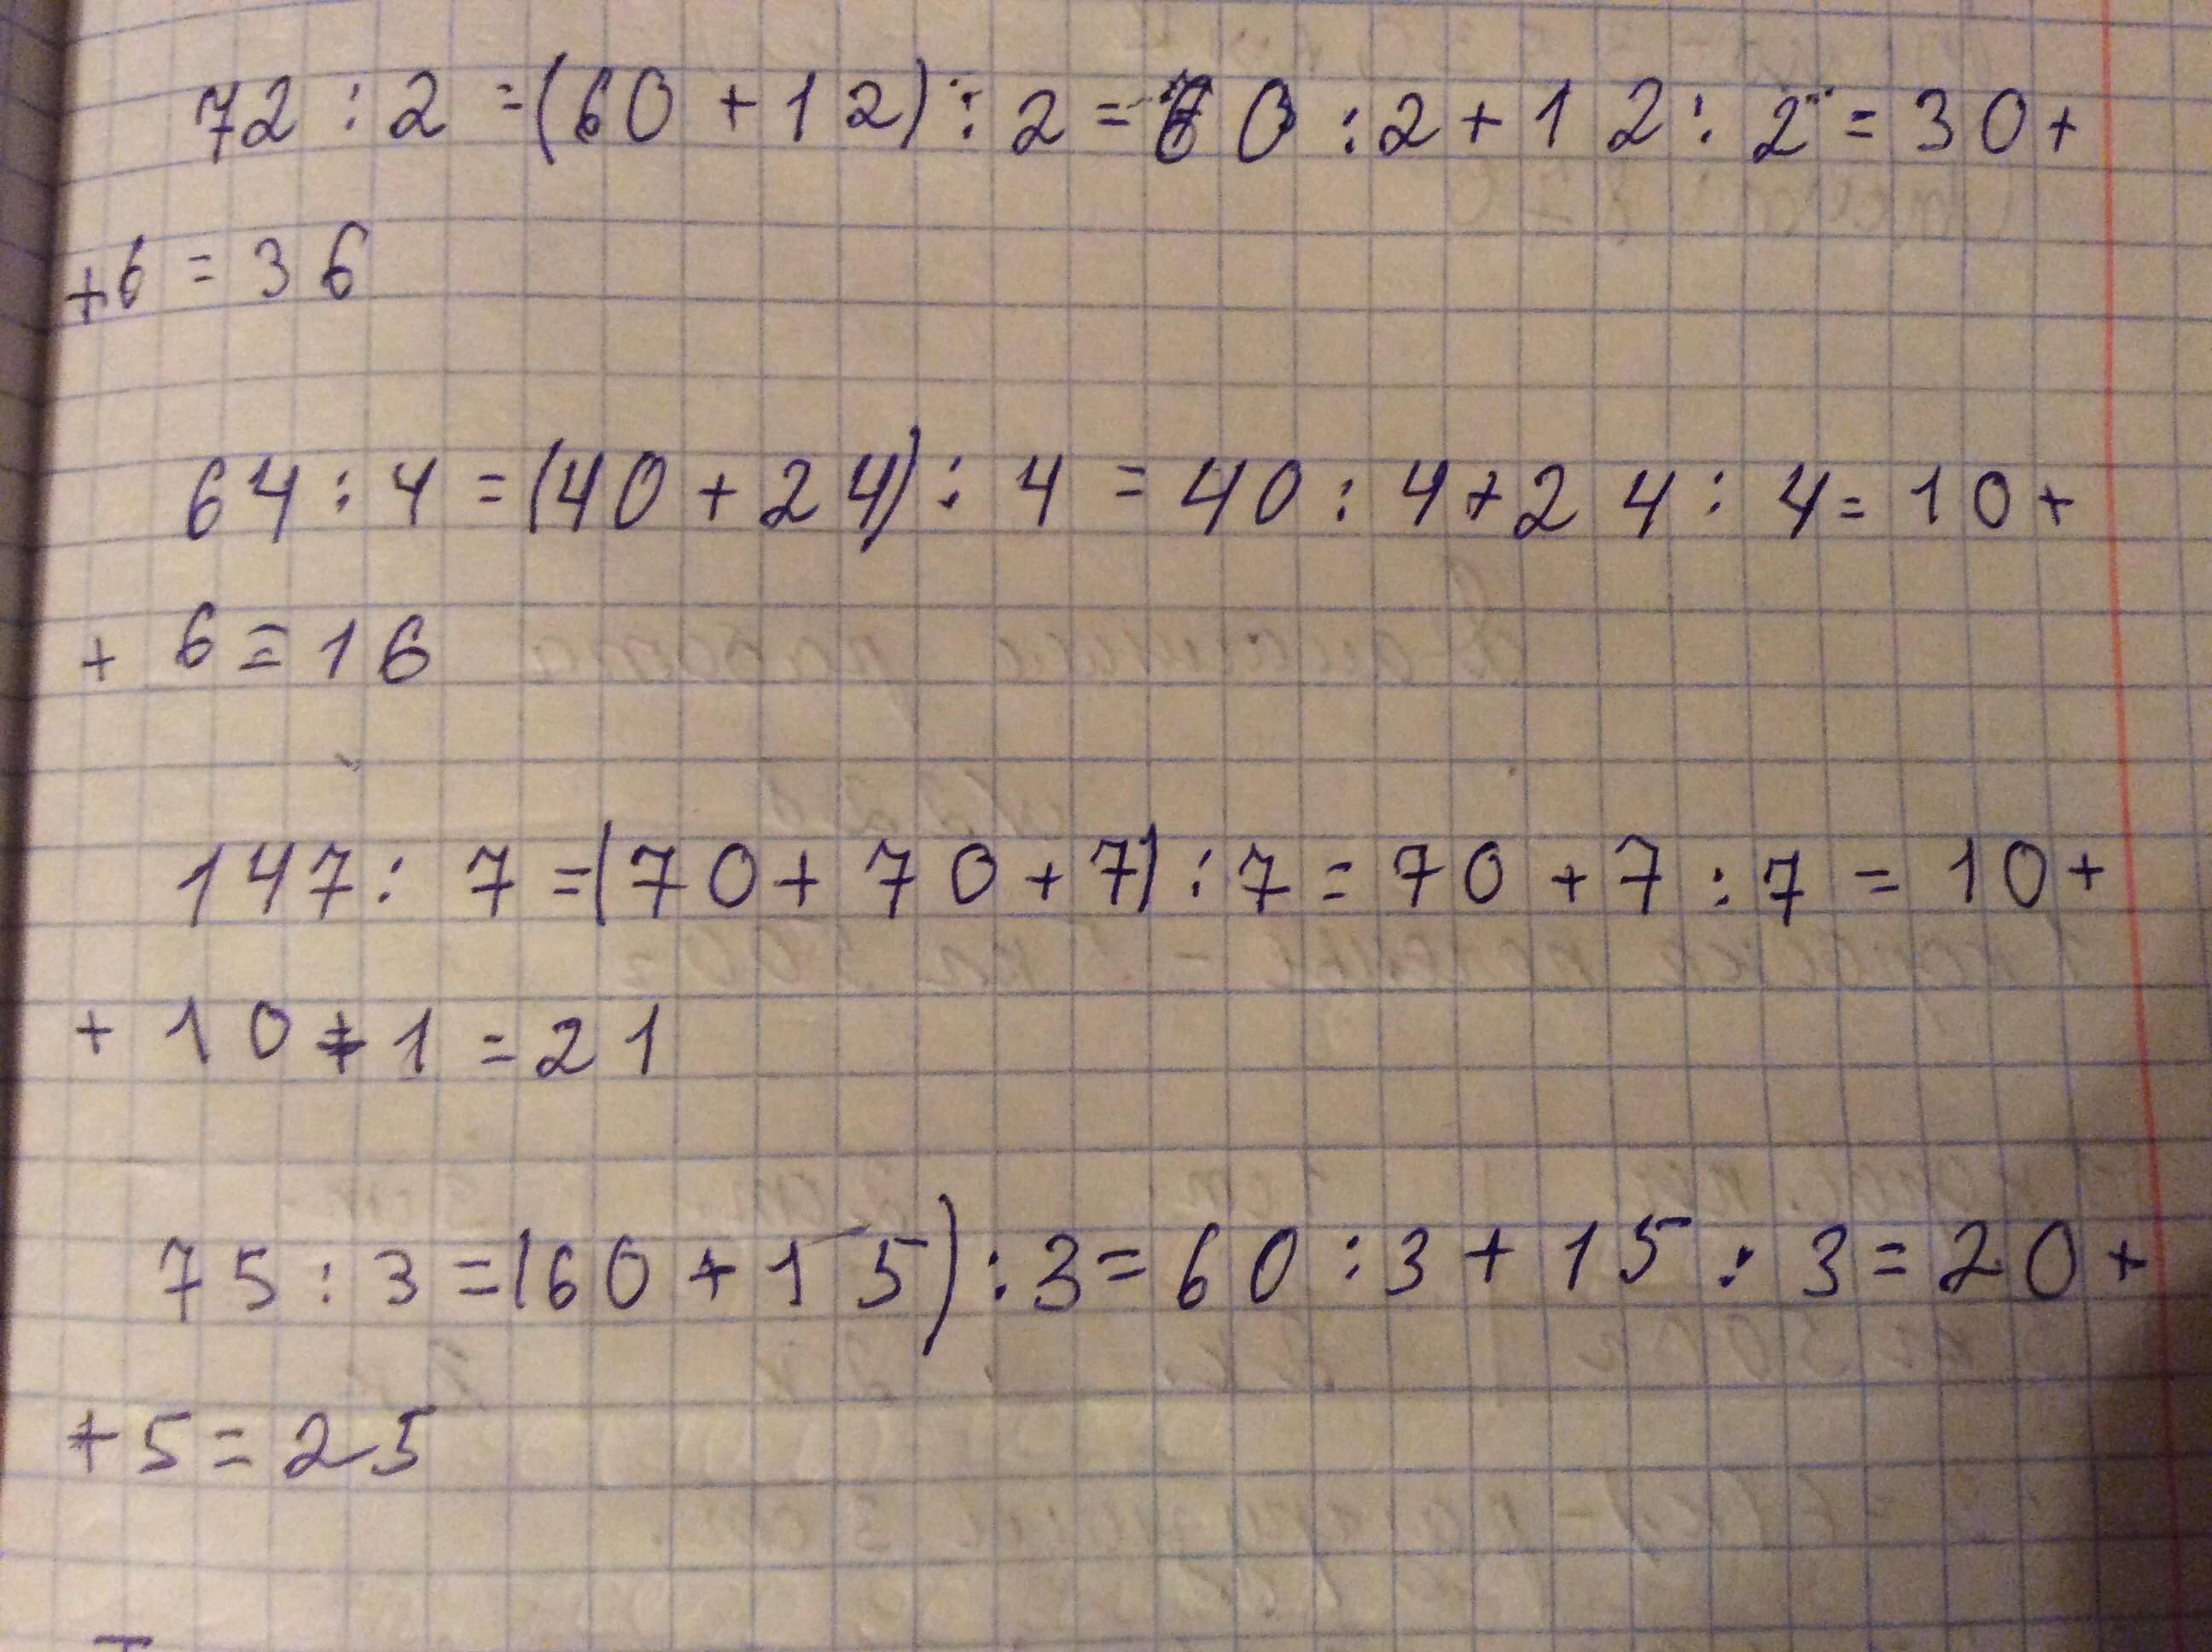 72 : 2 = (60 + 12) : 2 = 60 : 2 + 12 : 2 = 30 +
+ 6 = 36
64 : 4 = (40 + 24) : 4 = 40 : 4 + 24 : 4 = 10 +
+ 6 = 16
147 : 7 = (70 + 70 + 7) : 7 = 70 + 7 : 7 = 10 +
+ 10 + 1 = 21
75 : 3 = (60 + 15) : 3 = 60 : 3 + 15 : 3 = 20 +
+ 5 = 25